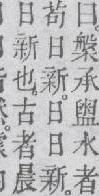 槃承盥水者
苟日新。日日新。
日新也。古者晨